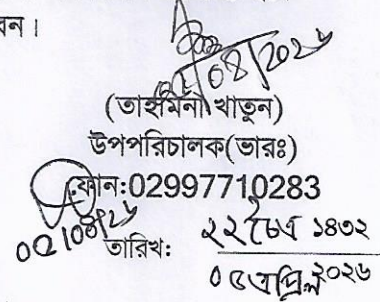 বেন।
০৫/০৪/২০২৬
(তাহমিনা খাতুন)
উপপরিচালক(ভারঃ)
ফোন:02997710283
০৫/০৪/২৬
তারিখ: ২২ চৈত্র ১৪৩২
০৫ এপ্রিল ২০২৬